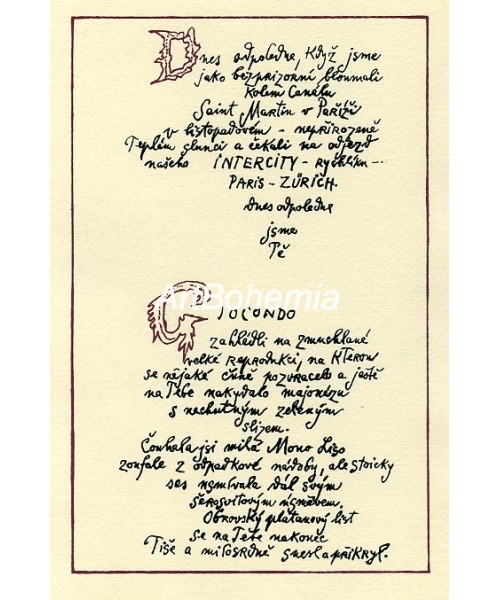 Dnes odpoledne, Když jsme
jako bezprizorní bloumali
Kolem Canálu
Saint Martin v Paříži
v listopadovém - nepřirozeně
Teplém slunci a čekali na odjezd
našeho INTERCITY - rychlíku -
PARIS - ZÜRICH.
dnes odpoledne
jsme
Tě
ArtBohemia
GIOCONDO
zahlédli na zmuchlané
velké reprodukci, na Kterou
se nějaké čůně pozvracelo a ještě
na Tebe nakydalo majonézu
s nechutným zeleným
slizem.
Čouhala jsi milá Mono Lízo
zoufale z odpadkové nádoby, ale stoicky
ses usmívala dál svým
šerosvitovým úsměvem.
Obrovský platanový list
se na Tebe nakonec
Tiše a milosrdně snesl a přikryl.